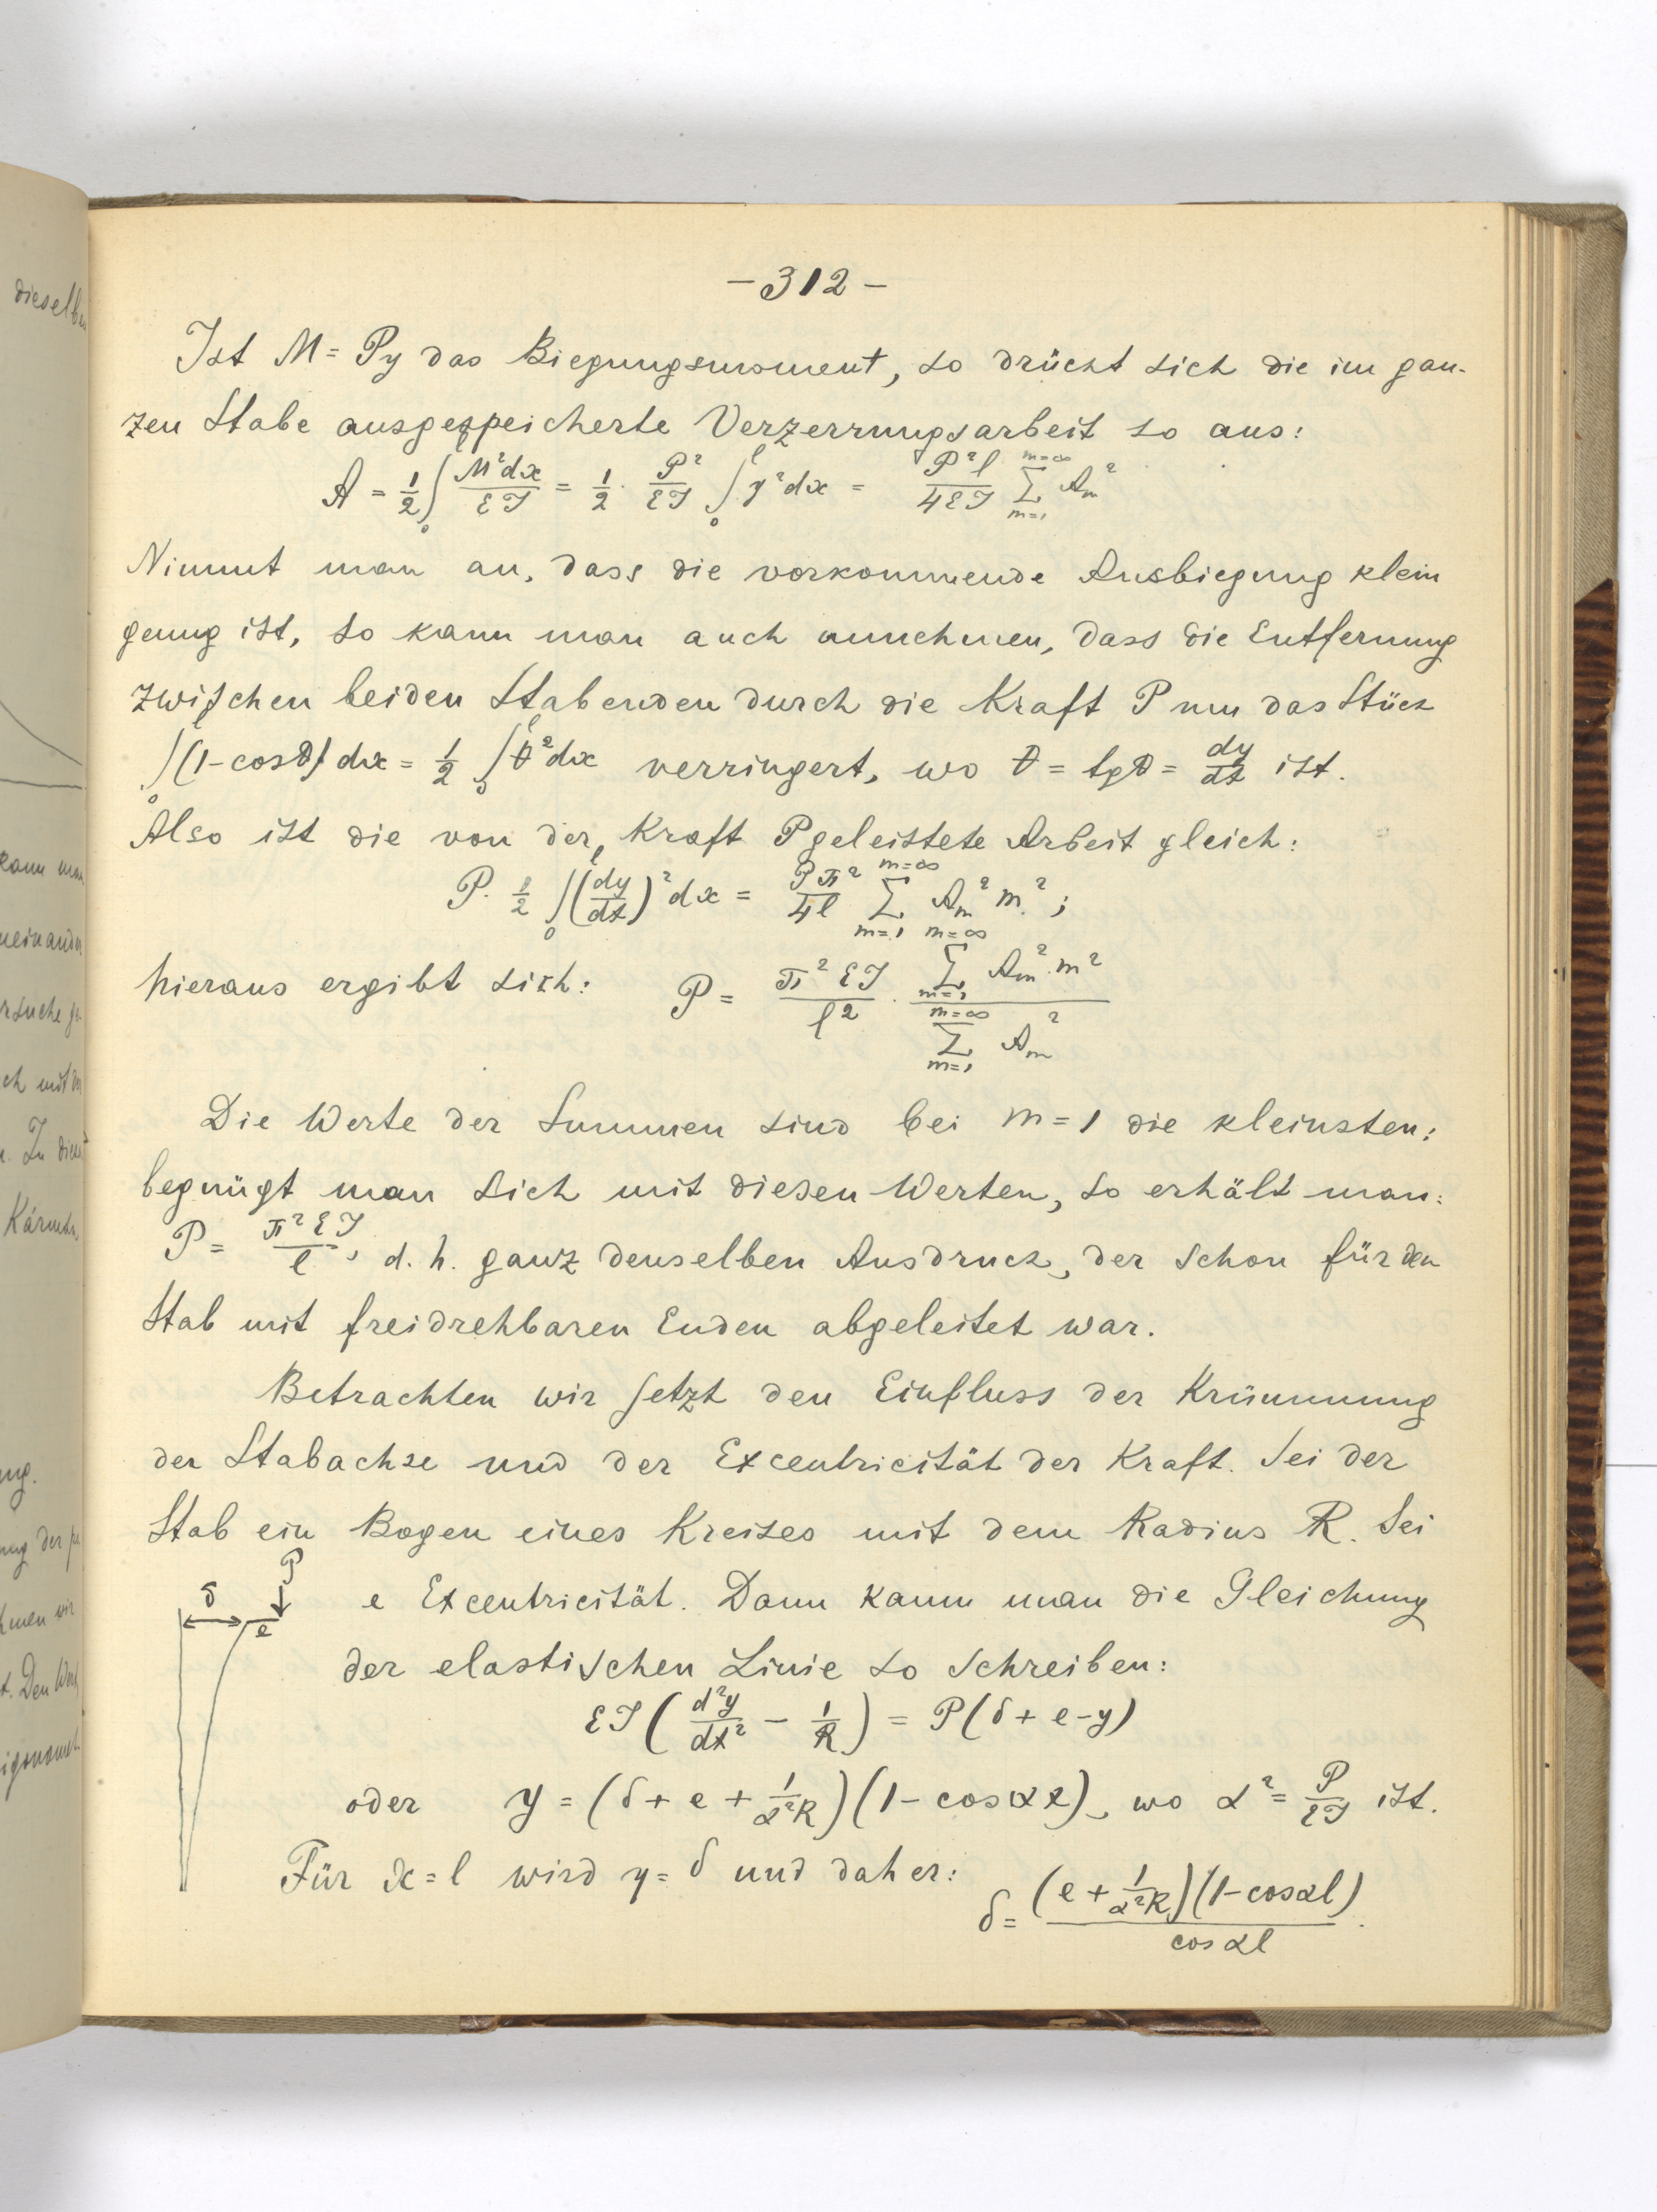 – 312 –
Ist M = Py das Biegungsmoment, so drückt sich die im gan-
zen Stabe ausgespeicherte Verzerrungsarbeit so aus:
A = 1/2 ∫₀ M²dx/EJ = 1/2 · P²/EJ ∫₀ˡ y²dx = P²l/4EJ Σ_{m=1}^{m=∞} A_m²
Nimmt man an, dass die vorkommende Ausbiegung klein
genug ist, so kann man auch annehmen, dass die Entfernung
zwischen beiden Stabenden durch die Kraft P um das Stück
∫₀ˡ (1-cosϑ) dx = 1/2 ∫₀ˡ ϑ²dx verringert, wo ϑ = tgϑ = dy/dx ist.
Also ist die von der Kraft P geleistete Arbeit gleich:
P · 1/2 ∫₀ˡ (dy/dx)² dx = Pπ²/4l Σ_{m=1}^{m=∞} A_m² m²;
hieraus ergibt sich: P = π²EJ/l² · Σ_{m=1}^{m=∞} A_m² · m² / Σ_{m=1}^{m=∞} A_m²
Die Werte der Summen sind bei m = 1 die kleinsten;
begnügt man sich mit diesen Werten, so erhält man:
P = π²EJ/l, d. h. ganz denselben Ausdruck, der schon für den
Stab mit freidrehbaren Enden abgeleitet war.
Betrachten wir jetzt den Einfluss der Krümmung
der Stabachse und der Excentricität der Kraft. Sei der
Stab ein Bogen eines Kreises mit dem Radius R. Sei
P
δ
e
e Excentricität. Dann kann man die Gleichung
der elastischen Linie so schreiben:
EJ (d²y/dx² – 1/R) = P(δ + e – y)
oder y = (δ + e + 1/α²R)(1 – cosαx), wo α² = P/EJ ist.
Für x = l wird y = δ und daher: δ = (e + 1/α²R)(1-cosαl) / cos αl.
dieselben
kann man
Kármán,